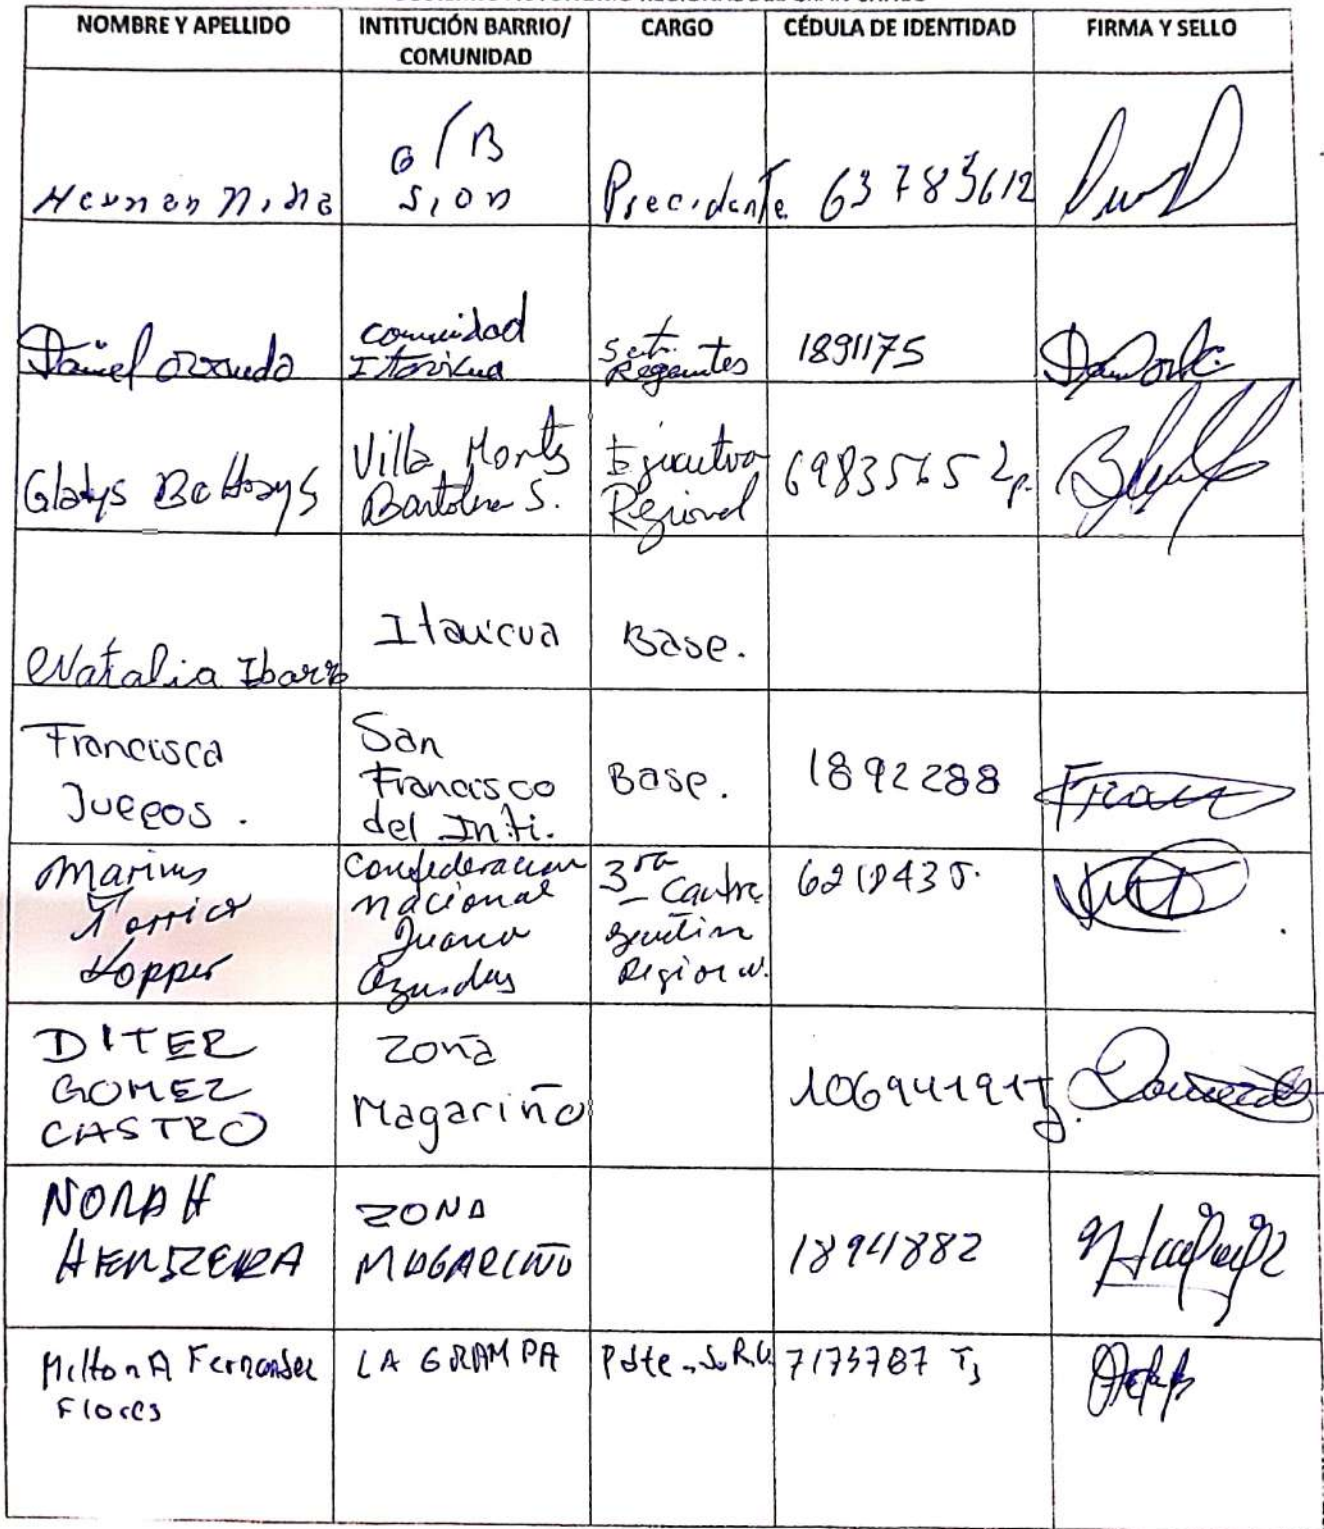 NOMBRE Y APELLIDO
INTITUCIÓN BARRIO/
COMUNIDAD
CARGO
CÉDULA DE IDENTIDAD
FIRMA Y SELLO
Hernan Nina
O/B
Sion
Precidente
63783612
Daniel
comunidad
1891175
Gladys
Villa Montes
Bartolina S.
Ejecutiva
Regional
6983565 Lp.
Natalia Ibarra
Itavicua
Base.
Francisca
Juegos.
San
Francisco
del Inti.
Base.
1892288
Marina
Torrico
Confederacion
nacional
Juana
Azurduy
3ra
Region
DITER
GOMEZ
CASTRO
Zona
Magariño
10694191
NORAH
HERRERA
ZONA
MAGARIÑO
18941882
Milton A Fernandez
Flores
LA GRAMPA
Pdte
7173787 Tj